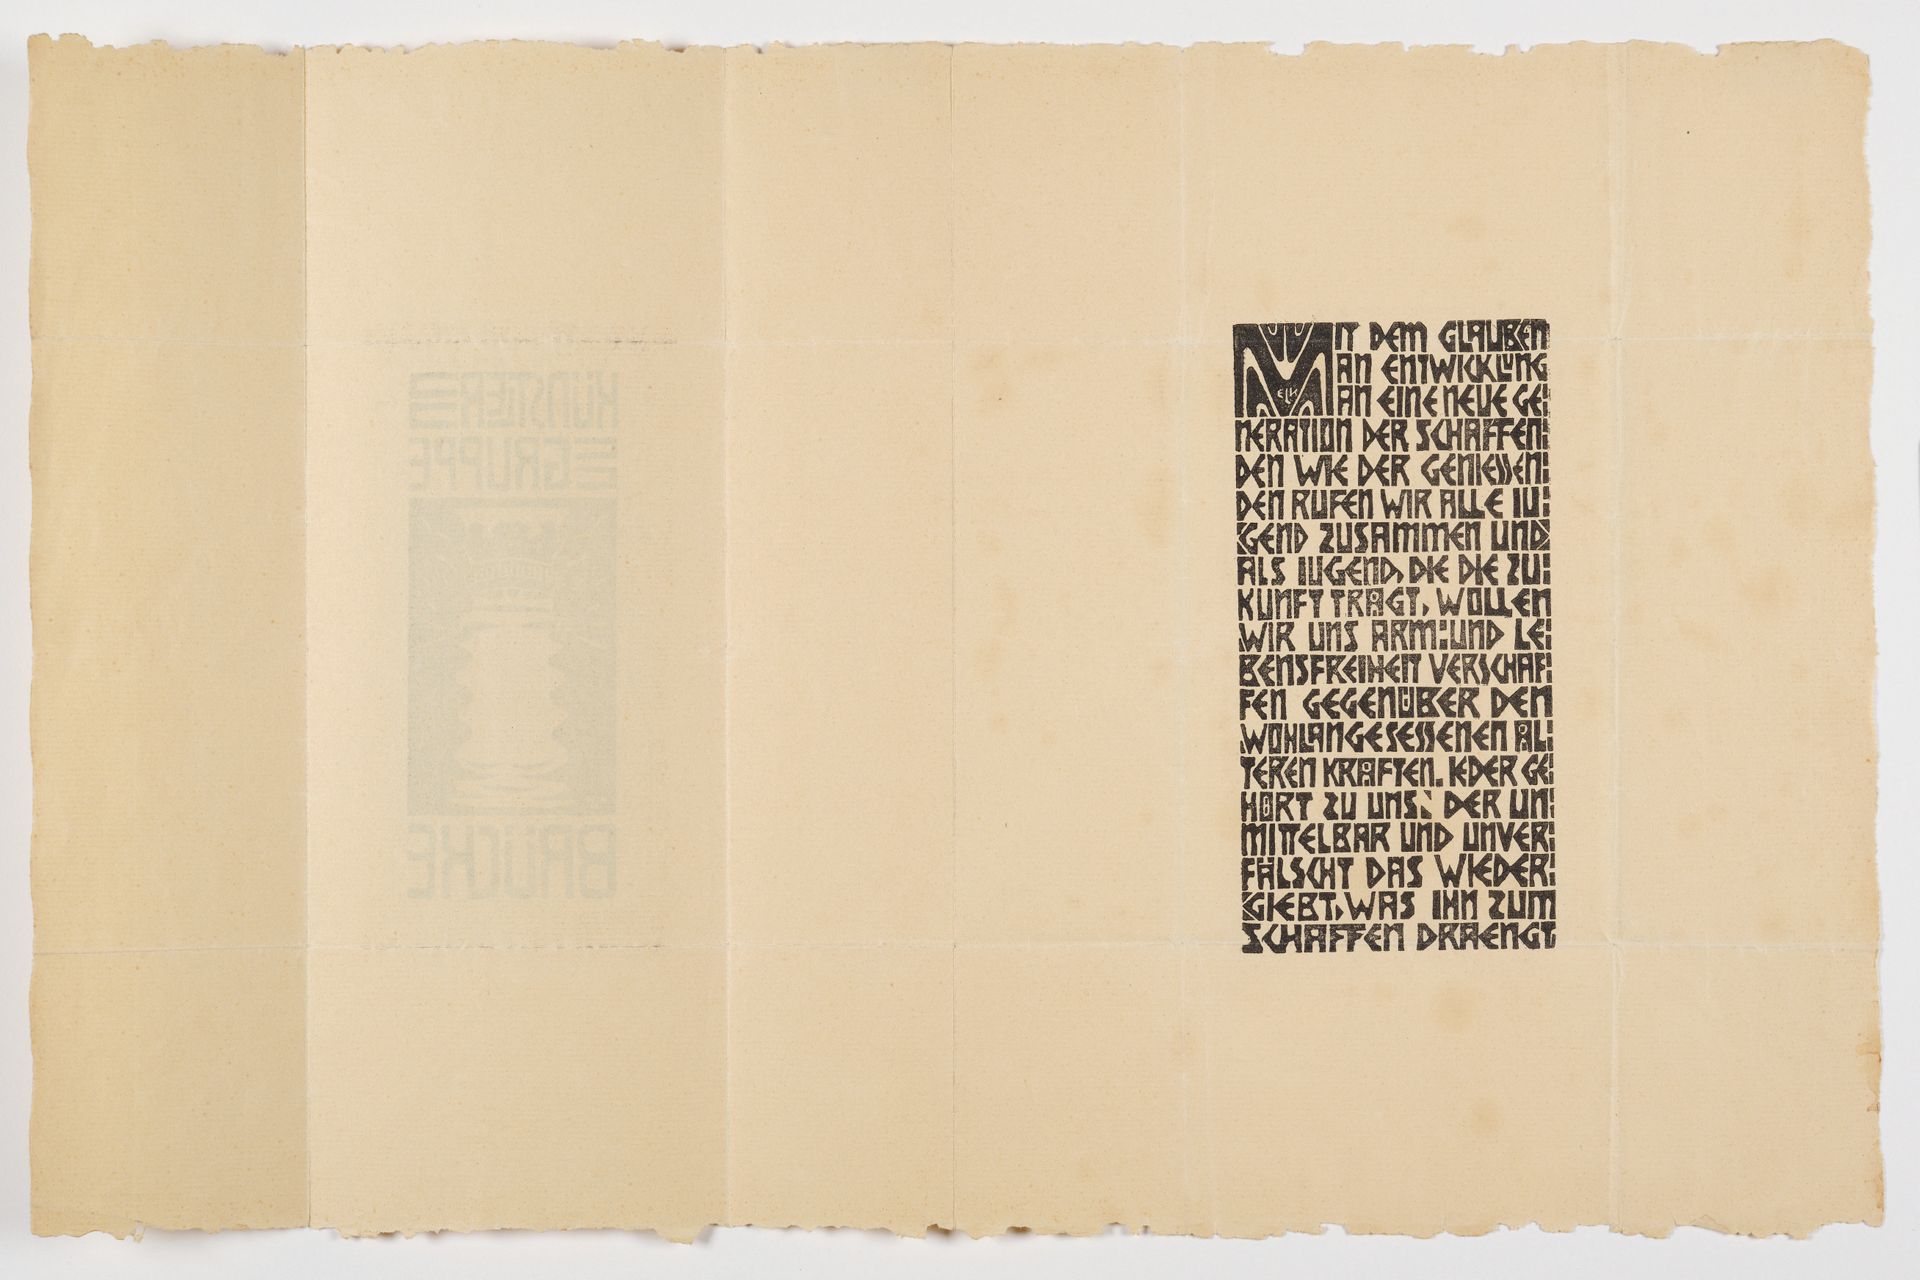 KÜNSTLER
GRUPPE
BRÜCKE
MIT DEM GLAUBEN
AN ENTWICKLUNG
AN EINE NEUE GE:
NERATION DER SCHAFFEN:
DEN WIE DER GENIESSEN:
DEN RUFEN WIR ALLE IU:
GEND ZUSAMMEN UND
ALS IUGEND, DIE DIE ZU:
KUNFT TRÅGT, WOLLEN
WIR UNS ARM:UND LE:
BENSFREIHEIT VERSCHAF:
FEN GEGENÜBER DEN
WOHLANGESESSENEN ÅL:
TEREN KRÅFTEN. IEDER GE:
HÖRT ZU UNS, DER UN:
MITTELBAR UND UNVER:
FÄLSCHT DAS WIEDER:
GIEBT, WAS IHN ZUM
SCHAFFEN DRAENGT